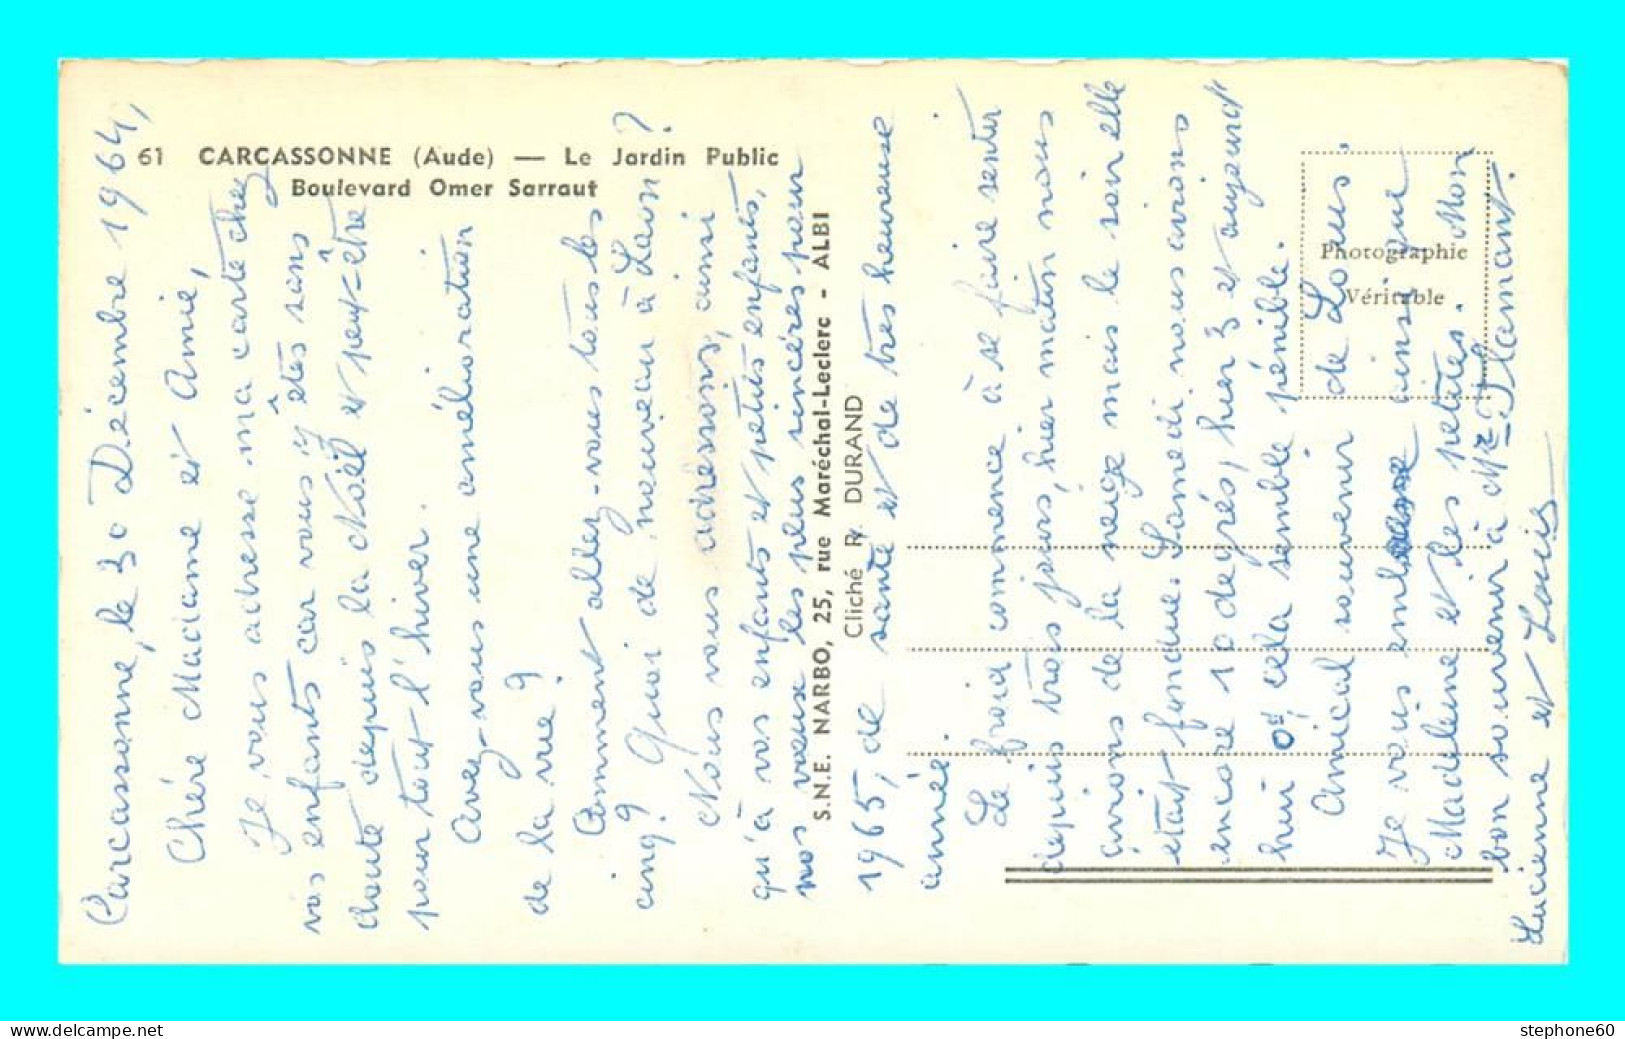 61 CARCASSONNE (Aude) — Le Jardin Public
Boulevard Omer Sarraut
S.N.E. NARBO, 25, rue Maréchal-Leclerc - ALBI
Cliché R. DURAND
Photographie
Véritable
Carcassonne, le 30 Décembre 1964,
Chère Madame et Amie,
Je vous adresse ma carte chez
vos enfants car vous y êtes sans
doute depuis la Noël et peut-être
pour tout l'hiver.
Avez-vous une amélioration
de la vue ?
Comment allez-vous tous les
cinq ? Quoi de nouveau à Laon ?
Nous vous adressons, ainsi
qu'à vos enfants et petits enfants,
nos vœux les plus sincères pour
1965, de santé et de très heureuse
année.
Le froid commence à se faire sentir
depuis trois jours, hier matin nous
avions de la neige mais le soir elle
était fondue. Samedi nous avions
encore 10 degrés, hier 3 et aujourd'
hui 0° cela semble pénible.
Amical souvenir de Lous.
Je vous embrasse ainsi que
Madeleine et les petites. Mon
bon souvenir à Mr Flamant.
Lucienne et Louis
delcampe.net
stephone60